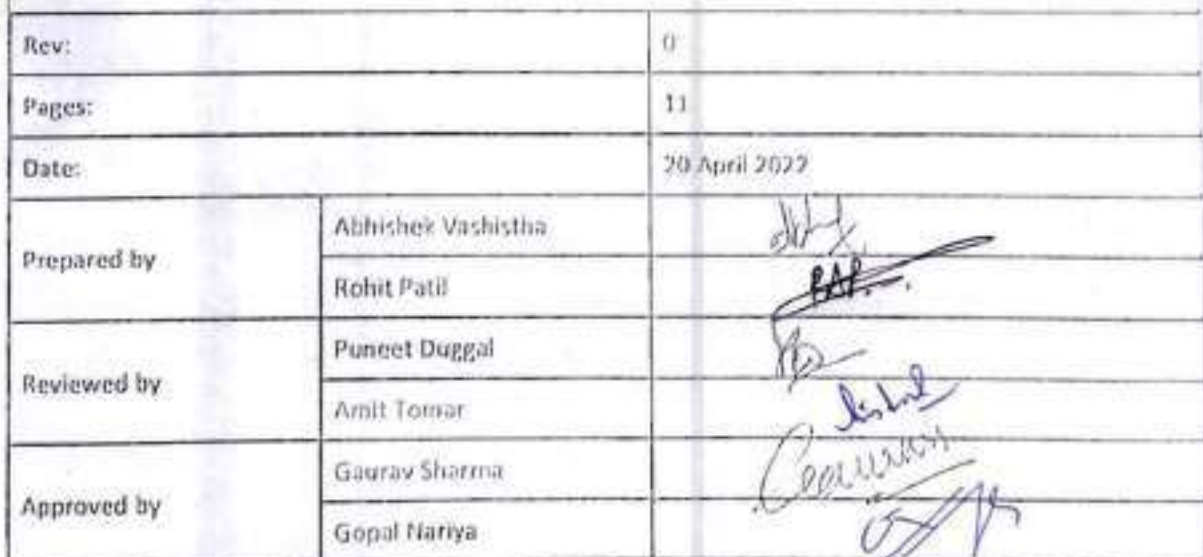 Rev: 0
Pages: 11
Date: 20 April 2022
Prepared by
Abhishek Vashistha
Rohit Patil
RAP.
Reviewed by
Puneet Duggal
Amit Tomar
Approved by
Gaurav Sharma
Gopal Nariya